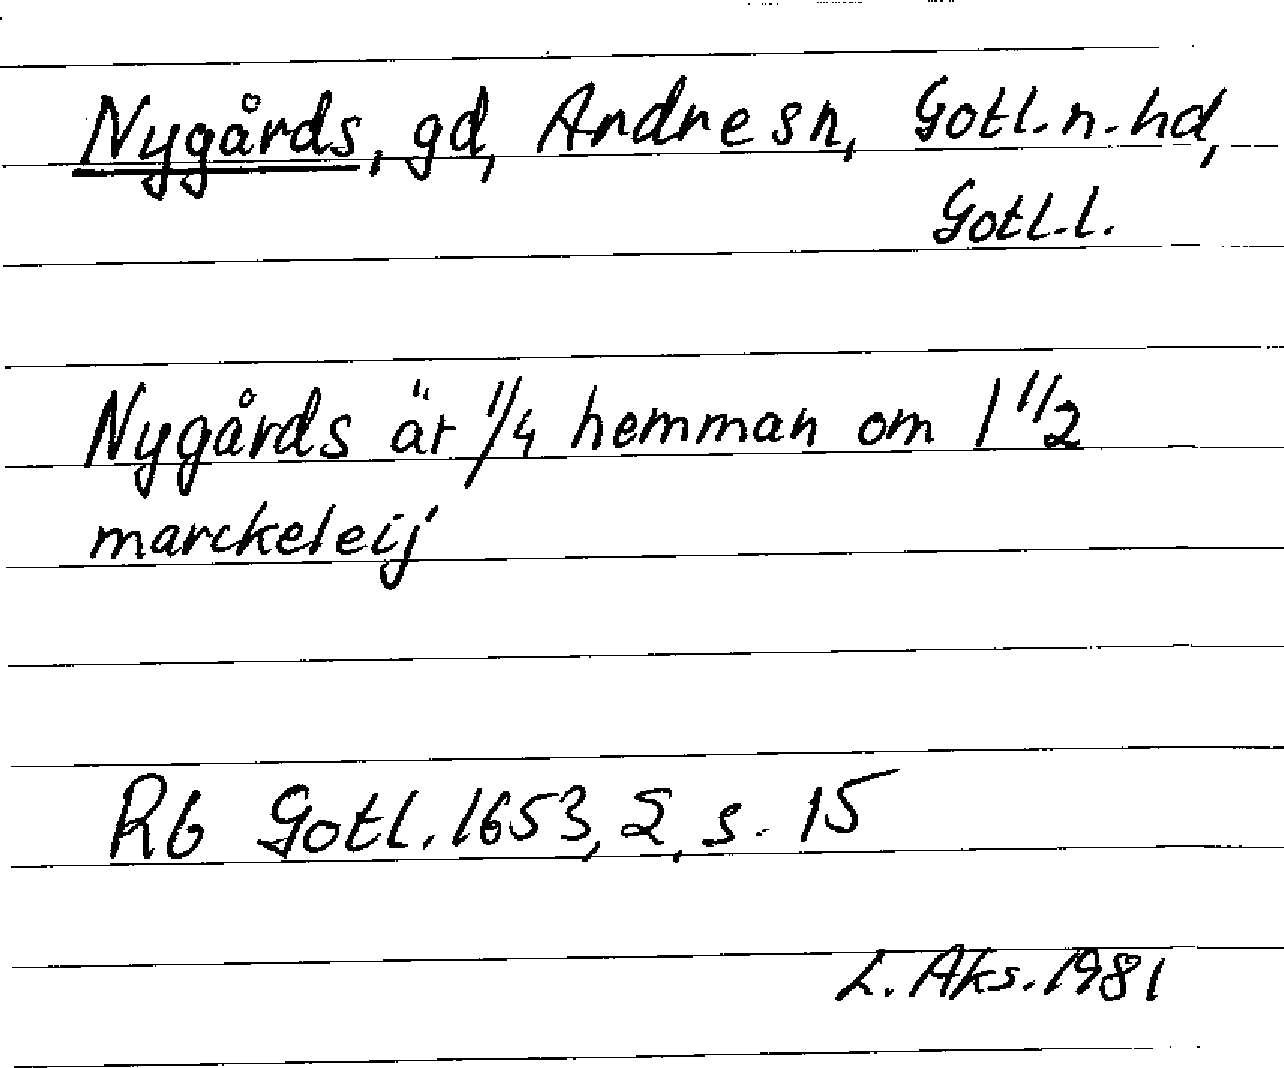 Nygårds, gd, Andre sn, Gotl. n. hd,
Gotl. l.
Nygårds är 1/4 hemman om 1 1/2
marckeleij
Rb Gotl. 1653, 2, s. 15
L. Aks. 1981